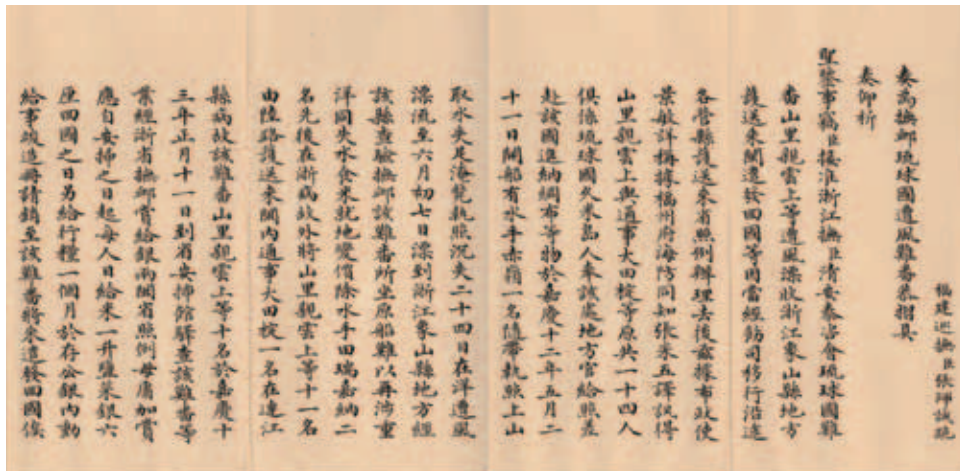 福建巡撫臣張師誠跪
奏為撫卹琉球國遭風難番恭摺具
奏仰祈
聖鑒事竊臣接准浙江撫臣清安泰咨會琉球國難
番山里親雲上等遭風漂收浙江象山縣地方
護送來閩遣發回國等因當經飭司移行沿途
各營縣護送來省照例辦理去後茲據布政使
景敏詳稱據福州府海防同知張采五譯訊得
山里親雲上與通事大田掟等原共一十四人
俱係琉球國久米島人奉該處地方官給照差
赴該國進納綢布等物於嘉慶十二年五月二
十一日開船有水手赤嶺一名隨帶執照上山
取水失足海覓執照沉失二十四日在洋遭風
漂流至六月初七日漂到浙江象山縣地方經
該縣查驗撫卹該難番所坐原船難以再涉重
洋同失水食米就地變價除水手田瑞嘉納二
名先後在浙病故外將山里親雲上等十一名
由陸路護送來閩內通事大田掟一名在連江
縣病故該難番山里親雲上等十名於嘉慶十
三年正月十一日到省安插館驛查該難番等
業經浙省撫卹賞給銀兩閩省照例毋庸加賞
應自安插之日起每人日給米一升鹽菜銀六
厘回國之日另給行糧一個月於存公銀內動
給事竣造冊請銷至該難番將來遣發回國俟